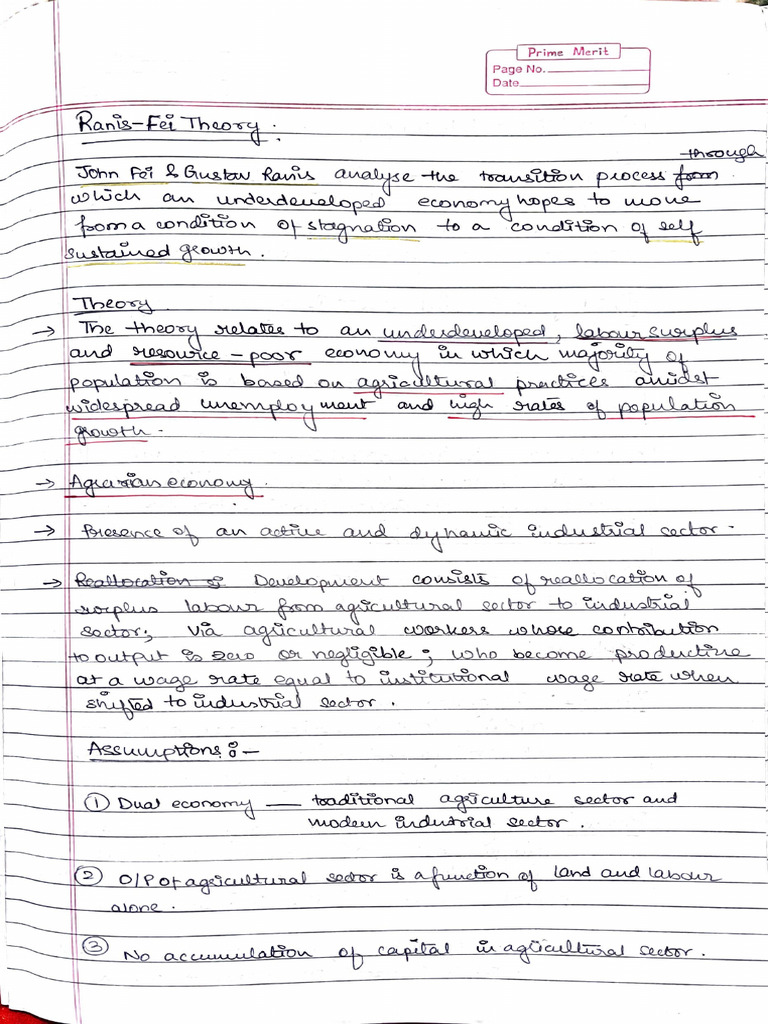 Prime Merit
Page No.
Date
Ranis-Fei Theory :
through
John Fei & Gustav Ranis analyse the transition process from
which an underdeveloped economy hopes to move
from a condition of stagnation to a condition of self
sustained growth.
Theory
→ The theory relates to an underdeveloped, labour surplus
and resource-poor economy in which majority of
population is based on agricultural practices amidst
widespread unemployment and high rates of population
growth.
→ Agrarian economy.
→ Presence of an active and dynamic industrial sector.
→ Reallocation of Development consists of reallocation of
surplus labour from agricultural sector to industrial
sector; via agricultural workers whose contribution
to output is zero or negligible; who become productive
at a wage rate equal to institutional wage rate when
shifted to industrial sector.
Assumptions :-
① Dual economy — traditional agriculture sector and
modern industrial sector.
② O/P of agricultural sector is a function of land and labour
alone.
③ No accumulation of capital in agricultural sector.